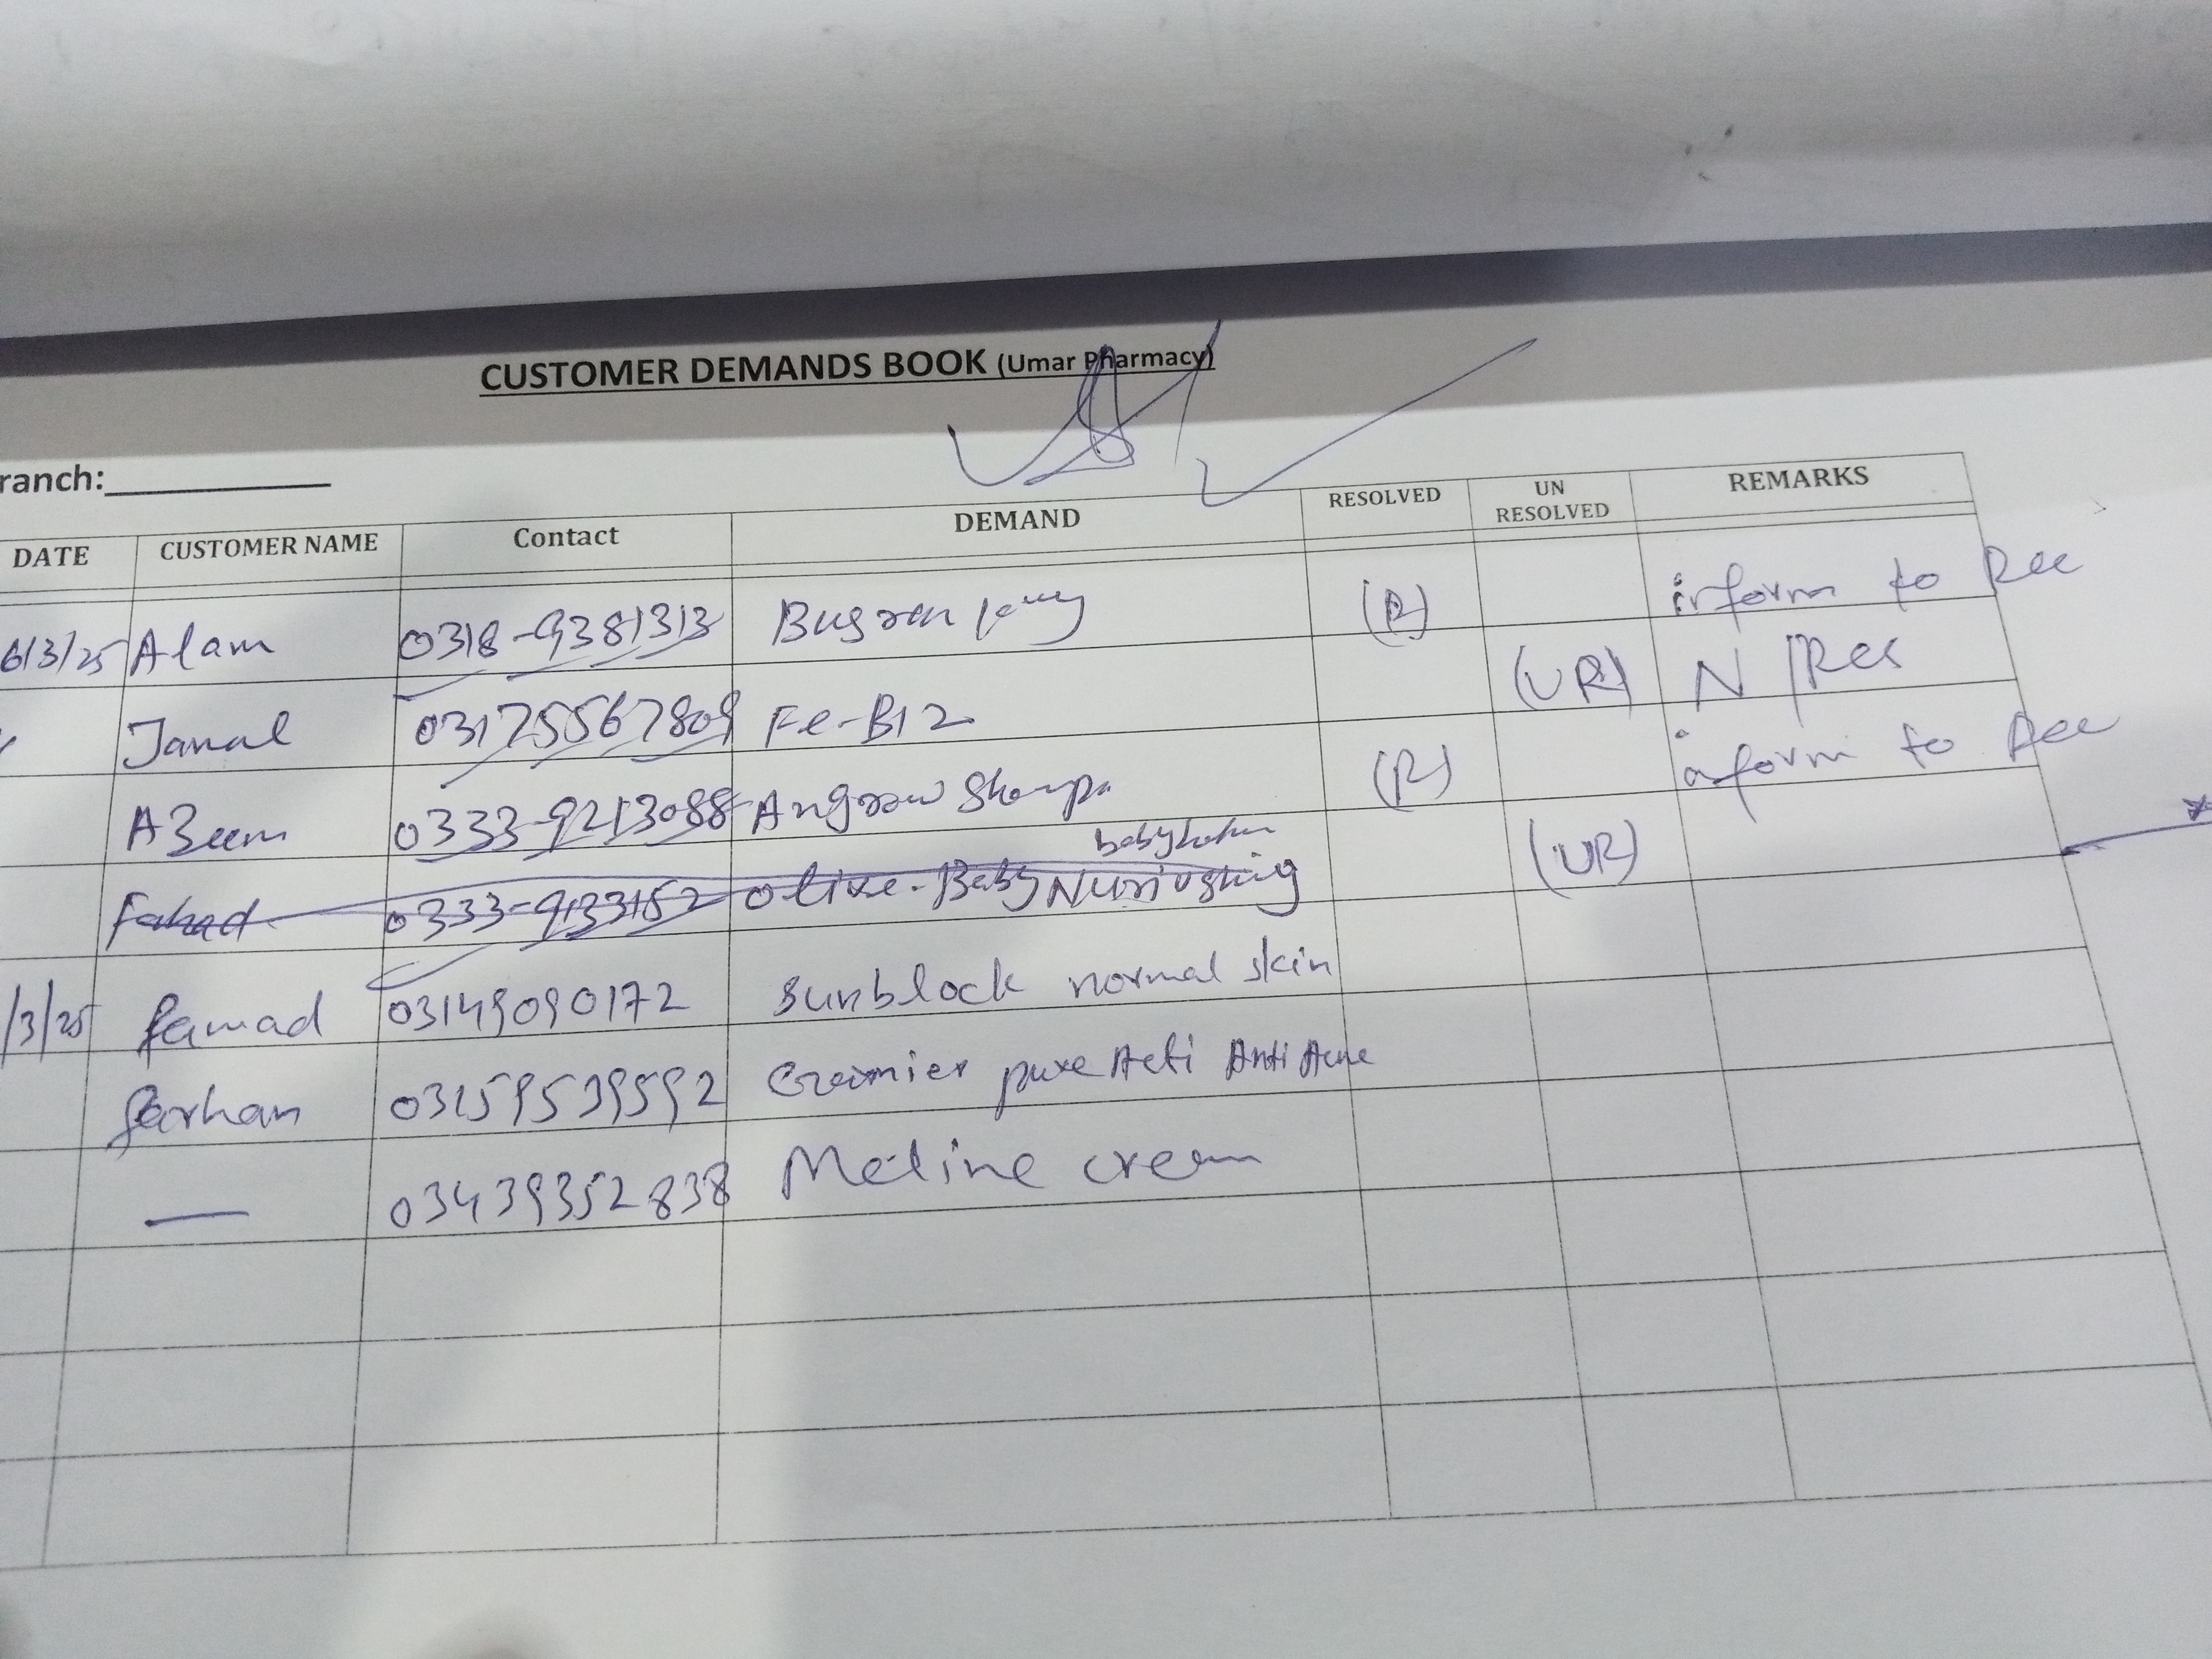 CUSTOMER DEMANDS BOOK (Umar Pharmacy)
ranch:
DATE CUSTOMER NAME Contact DEMAND RESOLVED UN RESOLVED REMARKS
6/3/25 Alam 0318-9381313 (R) inform to Rec
Jamal 03175567809 Fe-B12 (UR) N/Rec
Azeem 0333-9213088 (R) inform to Rec
baby lotion
Fahad 0333-9133152 olive-Baby (UR)
/3/25 famad 03149090172 sunblock normal skin
farhan 03159539592 Garnier pure Acti Anti Acne
— 03439352838 Meline cream